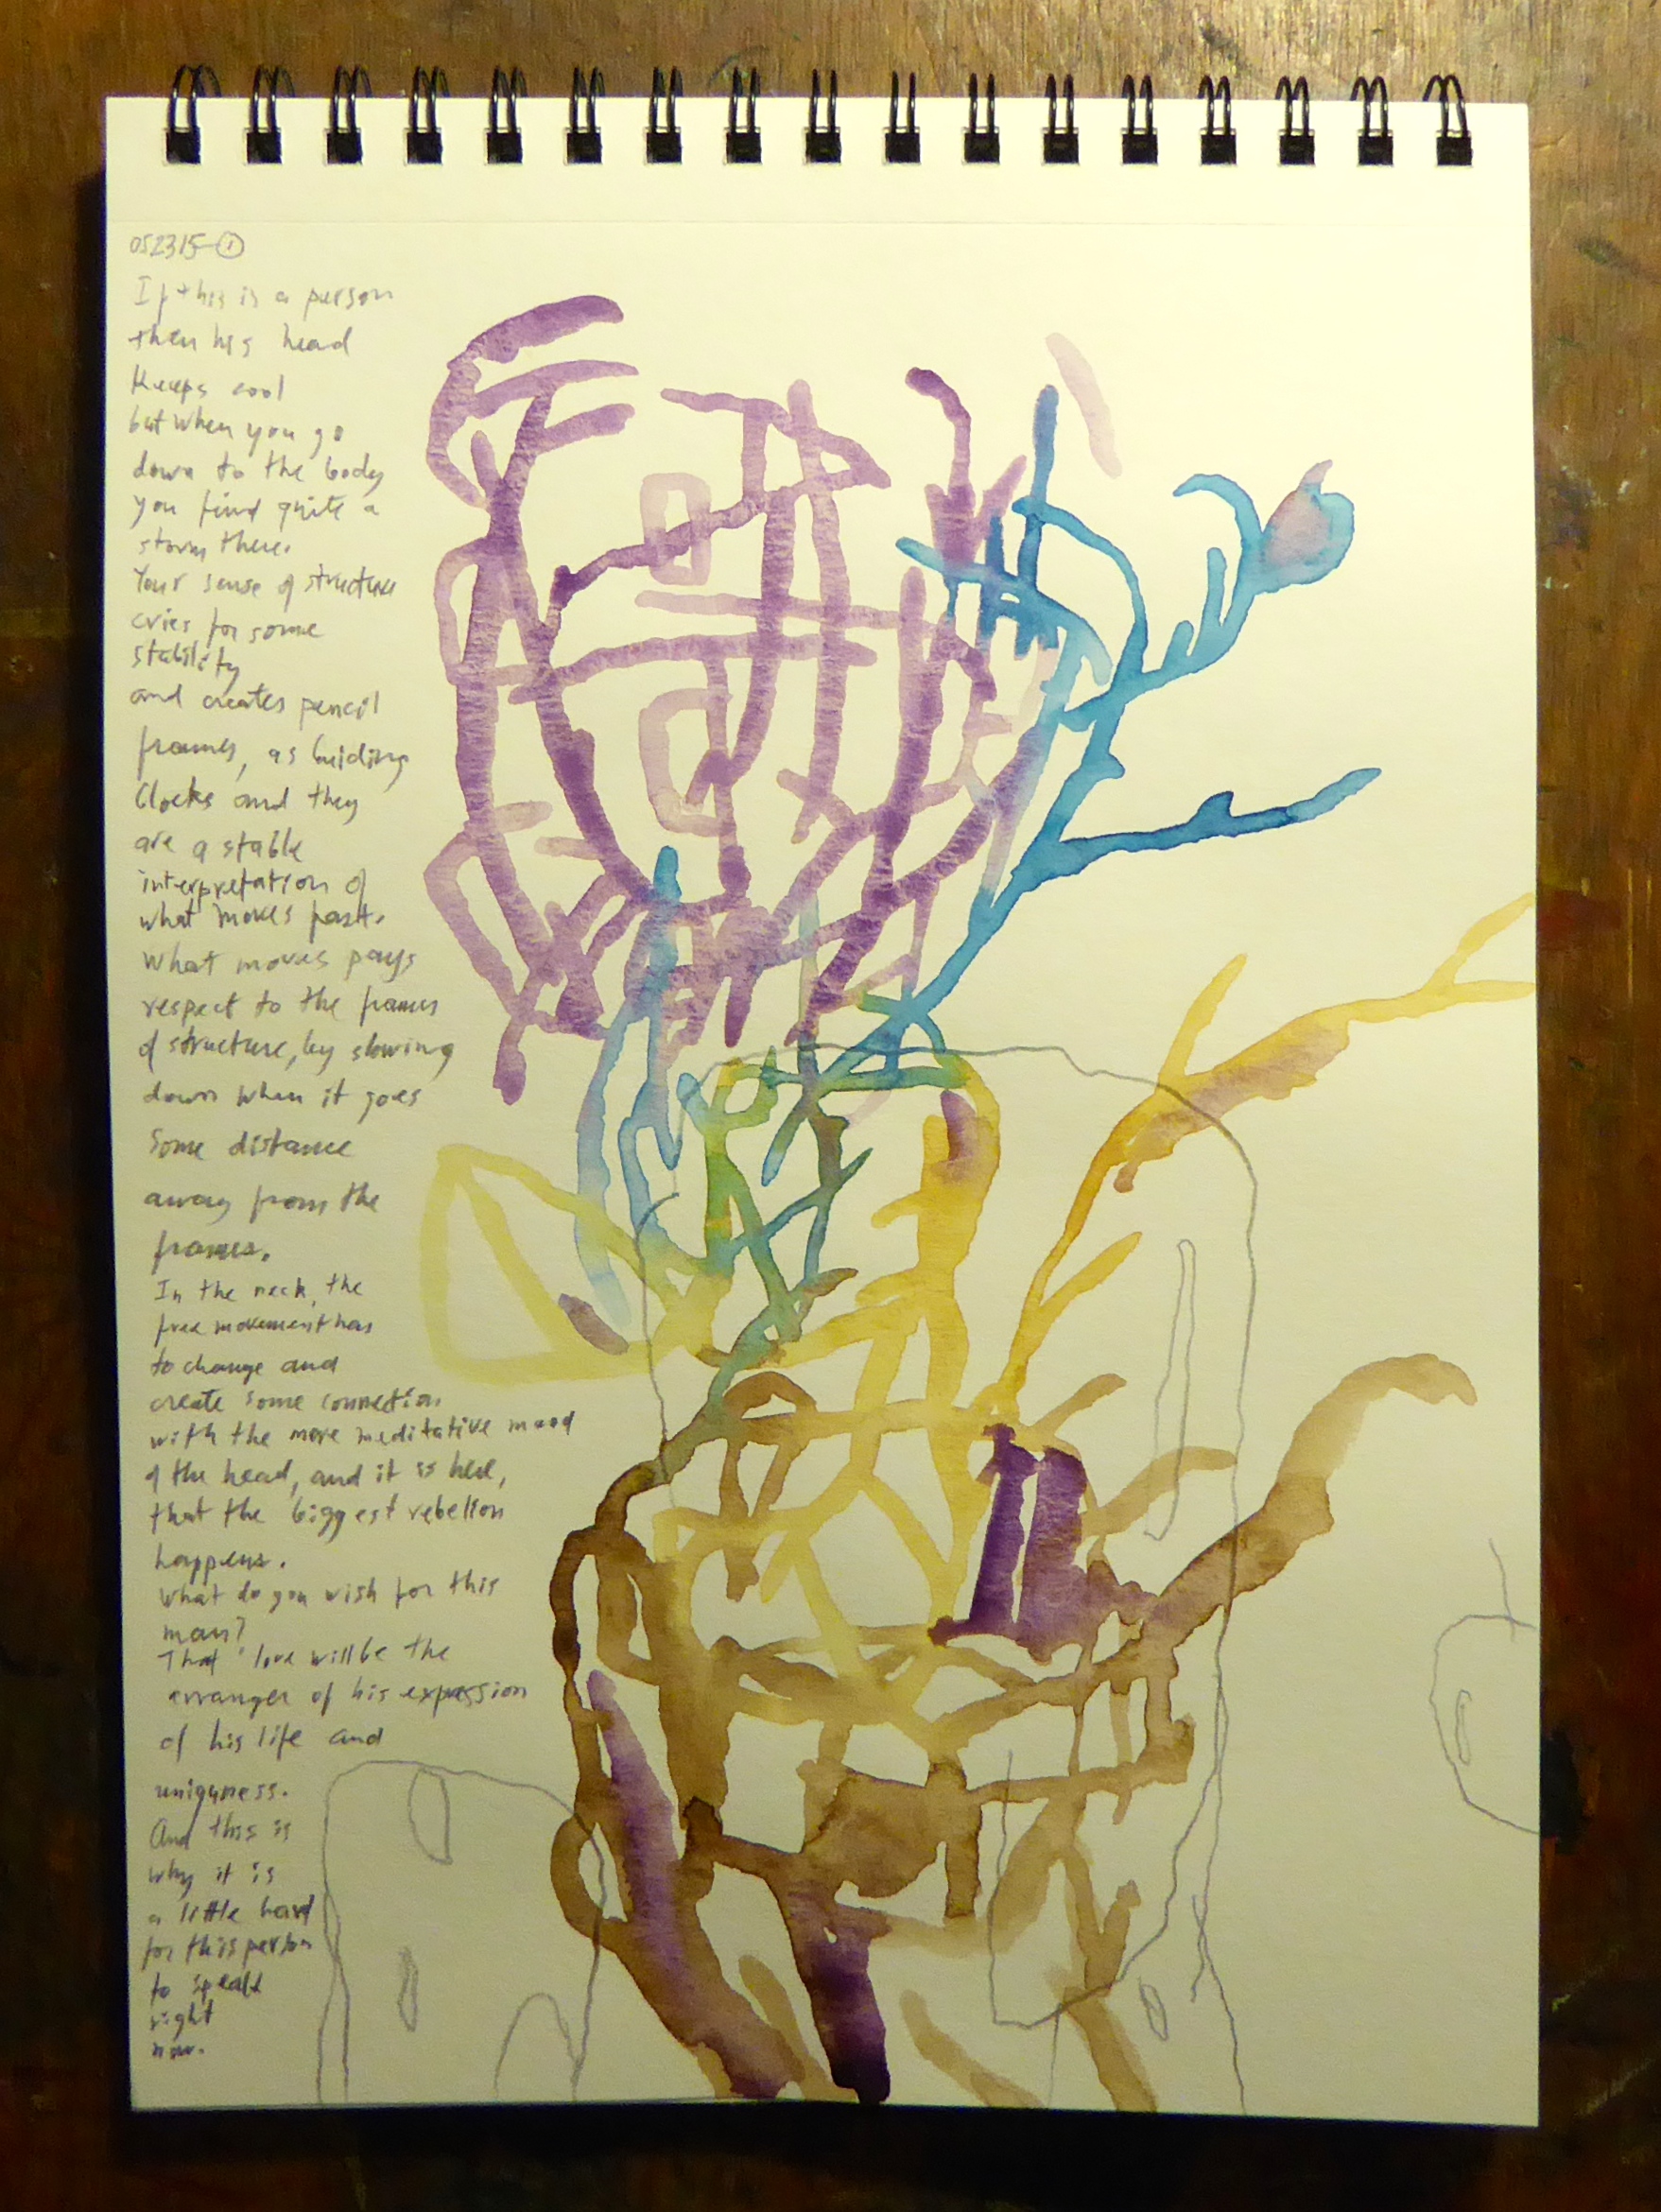 052315-①
If this is a person
then his head
keeps cool
but when you go
down to the body
you find quite a
storm there.
Your sense of structure
cries for some
stability
and creates pencil
frames, as building
blocks and they
are a stable
interpretation of
what moves fast.
What moves pays
respect to the frames
of structure, by slowing
down when it goes
some distance
away from the
frames.
In the neck, the
free movement has
to change and
create some connection
with the more meditative mood
of the head, and it is here,
that the biggest rebelion
happens.
What do you wish for this
man?
That love will be the
arranger of his expression
of his life and
uniqness.
And this is
why it is
a little hard
for this person
to speak
right
now.